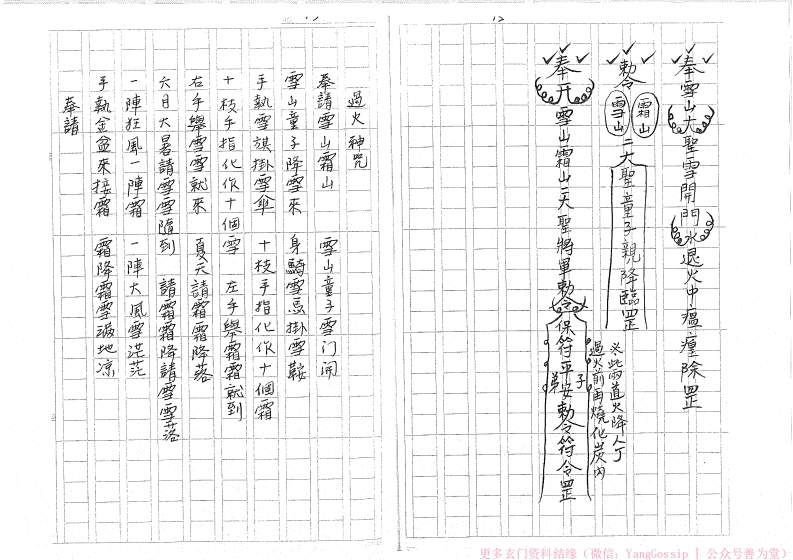 12
奉雪山大聖雪開門水退火中瘟㾮除罡
勅令
霜山
雪山
二大聖童子親降臨罡
奉开雪山霜山二大聖將軍勅令保符平安勅令符令罡
弟子
火此兩道火降人丁
過火前再燒化炭内
過火神咒
奉請雪山霜山　雪山童子雪门開
雪山童子降雪來　身騎雪馬掛雪鞍
手執雪旗掛雪傘　十枝手指化作十個霜
十枝手指化作十個雪　左手舉霜霜就到
右手舉雪雪就來　夏天請霜霜降落
六月大暑請雪雪隨到　請霜霜降請雪雪落
一陣狂風一陣霜　一陣大風雪茫茫
手執金盆來接霜　霜降霜雪滿地凉
奉請
更多玄门资料结缘（微信：YangGossip | 公众号善为堂）